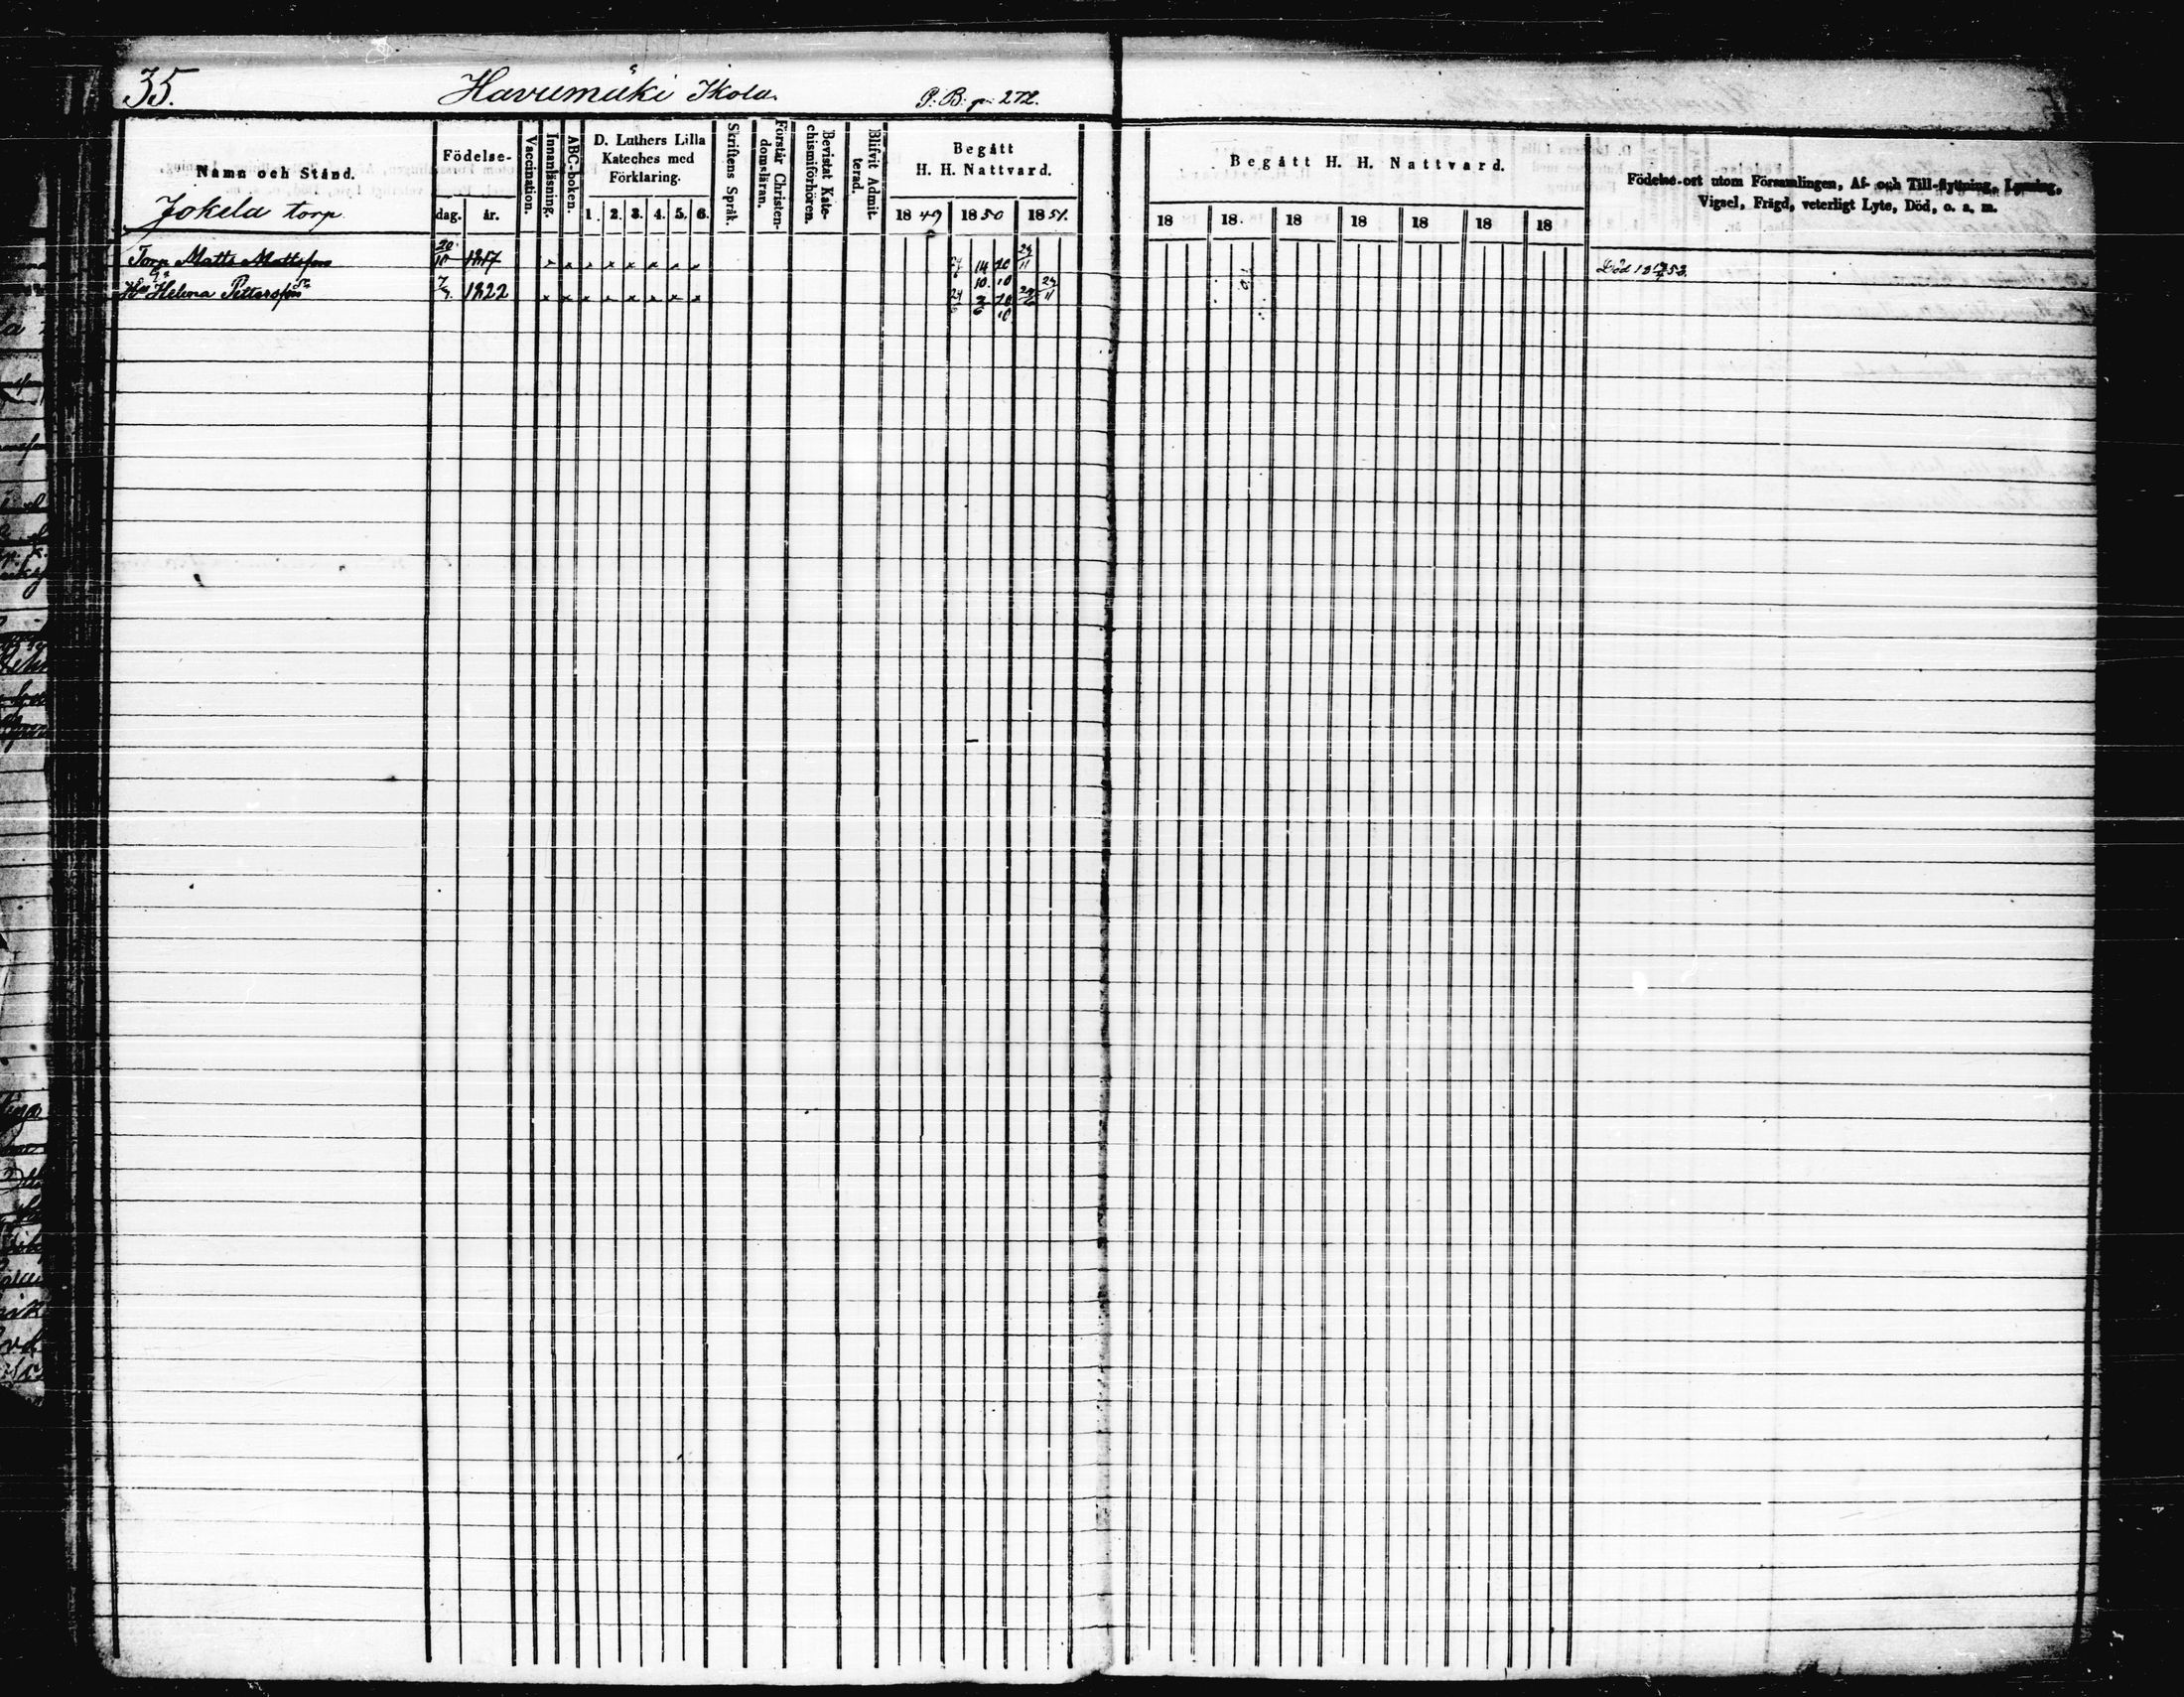 35. Havumäki Ikola P. B. p. 272.
Namn och Stånd.
Födelse-
dag. år.
Vaccination.
Innanläsning.
ABC-boken.
D. Luthers Lilla
Kateches med
Förklaring.
1. 2. 3. 4. 5. 6.
Skriftens Språk.
Förstår Christen-
domsläran.
Bevistat Kate-
chismiförhören.
Blifvit Admit-
terad.
Begått
H. H. Nattvard.
18 49 18 50 18 51.
Begått H. H. Nattvard.
18 18. 18 18 18 18 18
Födelse-ort utom Församlingen, Af- och Till-flyttning, Lysning,
Vigsel, Frägd, veterligt Lyte, Död, o. s. m.
Jokela torp
Torp Matts Mattsson 20/10 1817 x x x x x x x x 14/10 20/10 24/11 Död
Helena Pettersson 7/9. 1822 x x x x x x x x 24/6 20/10 24/11